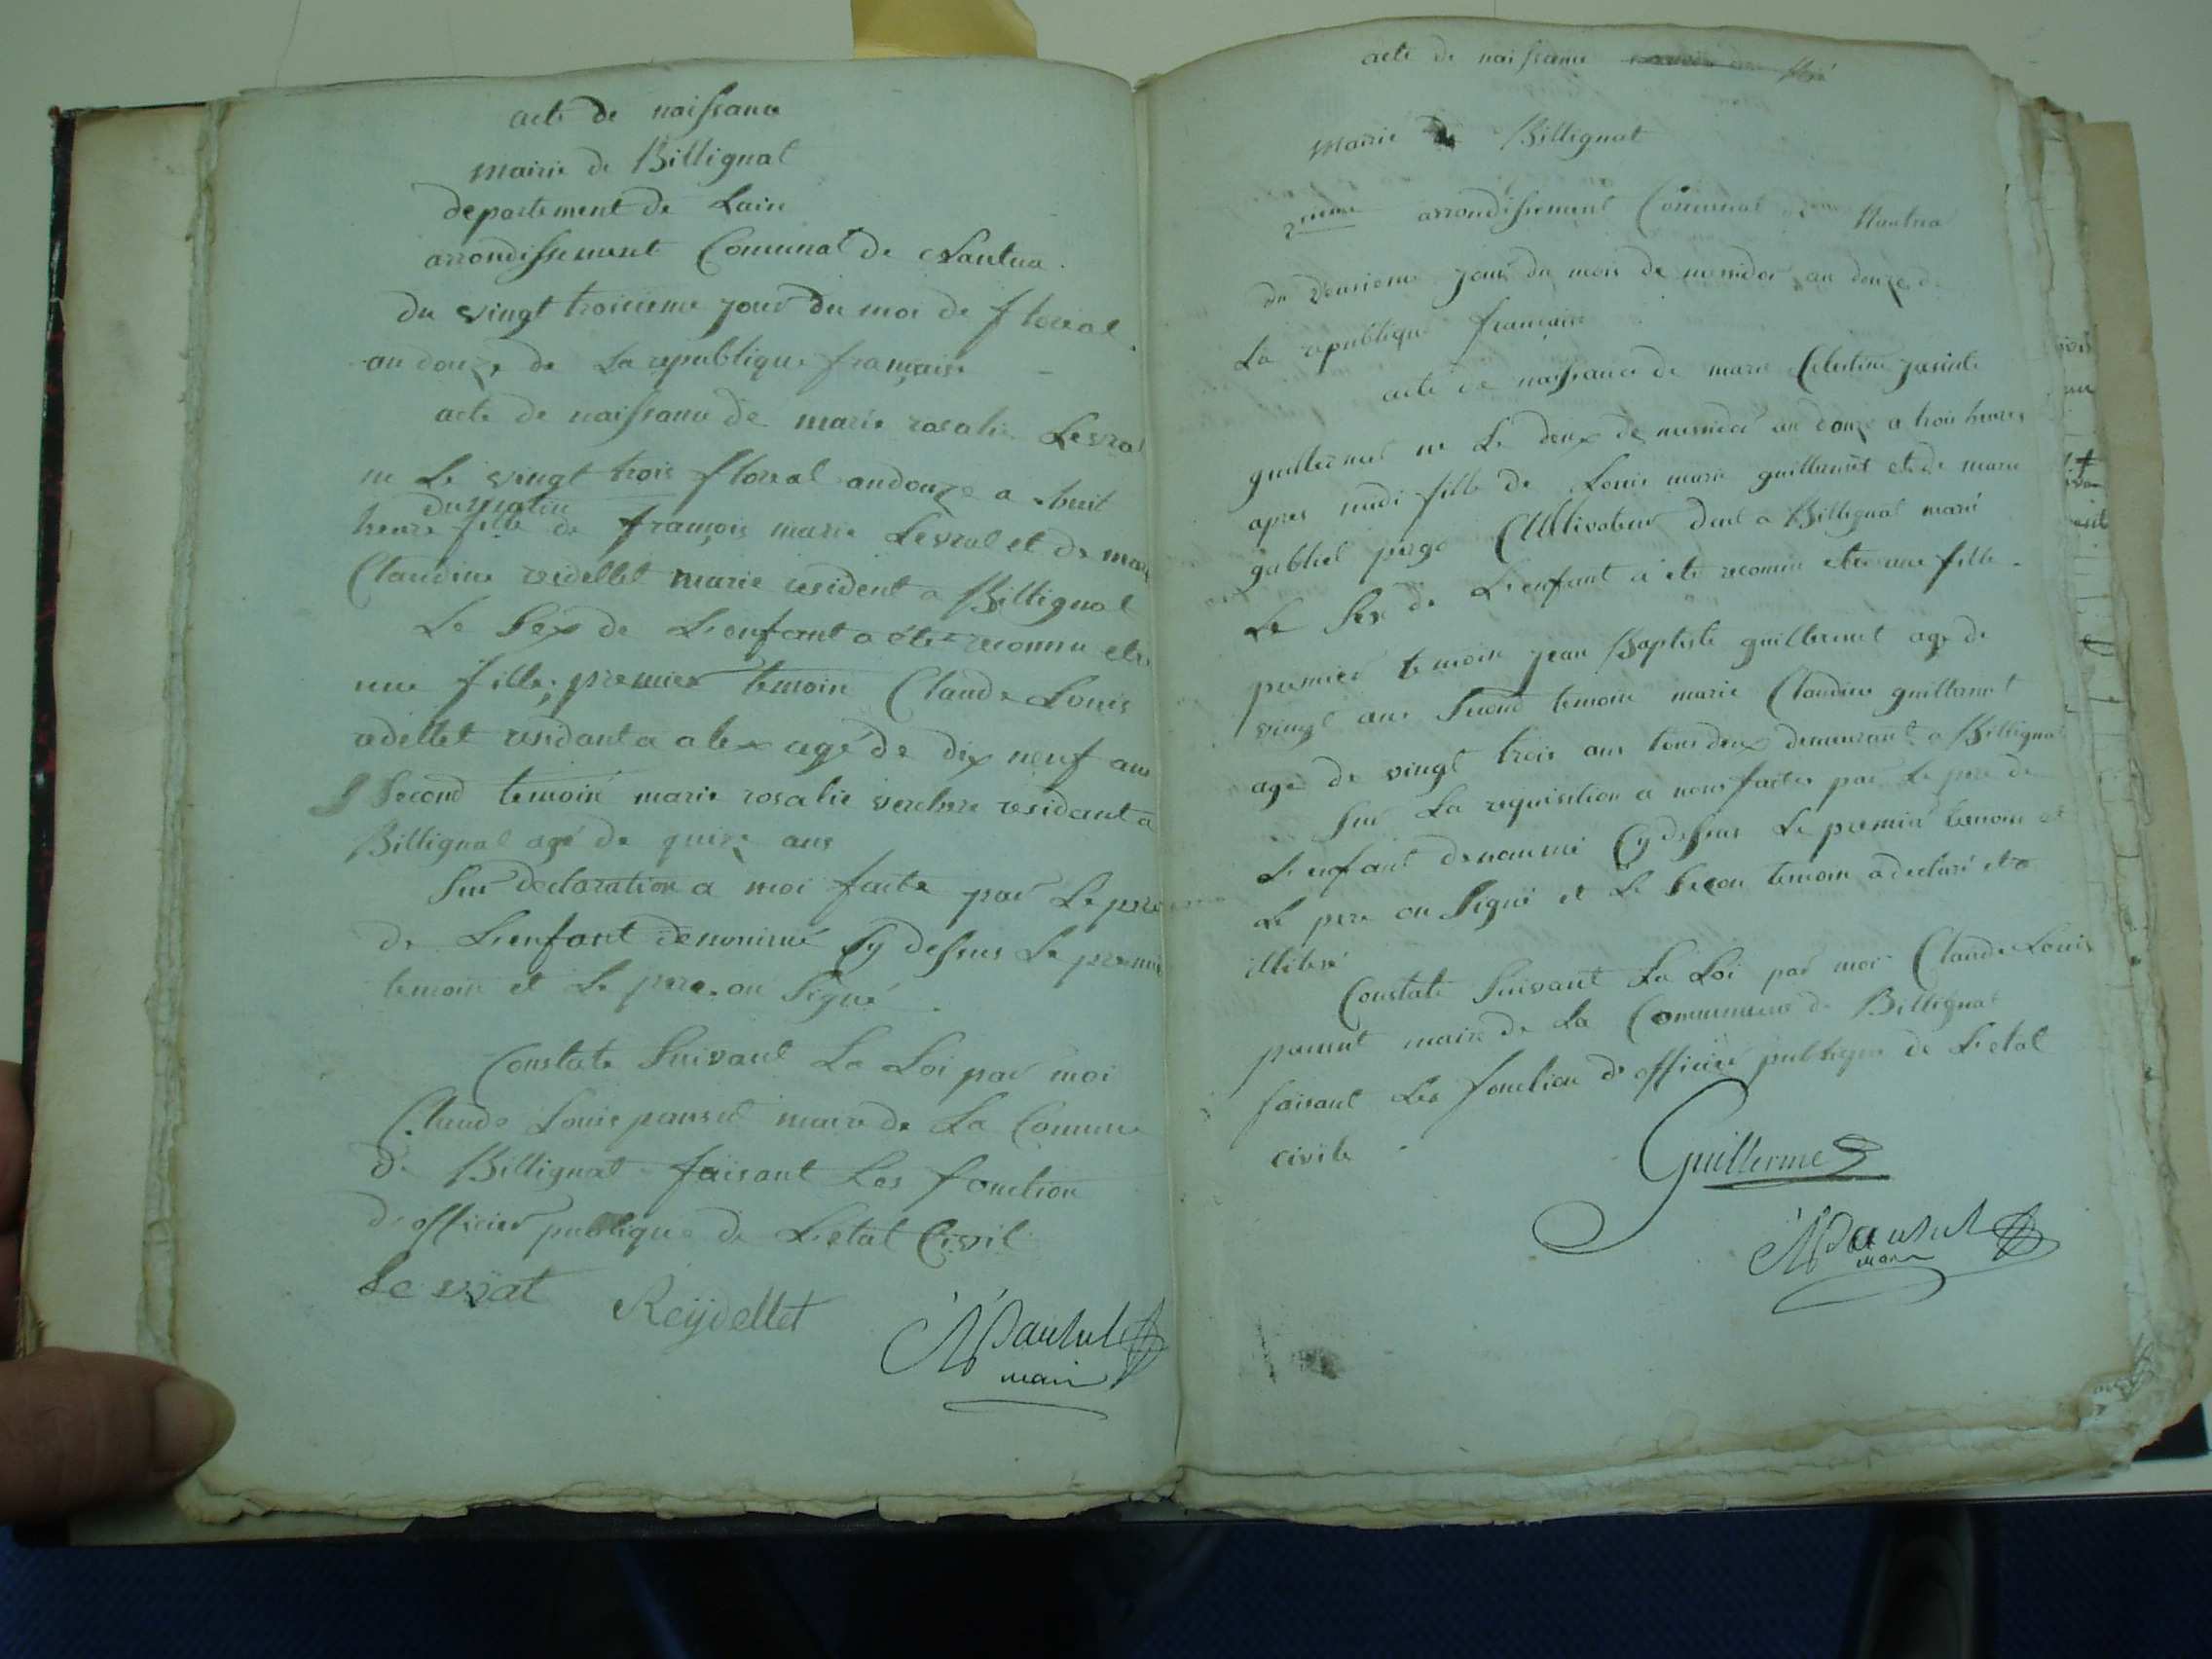 acte de naissance
mairie de Billignat
departement de Lain
arrondissement Comunal de Nantua.
du vingt troisieme jour du moi de floreal
an douze de La republique française
acte de naissance de marie rosalie Levrat
ne Le vingt trois floreal an douze a huit
du matin
heure fille de françois marie Levrat et de marie
Claudine reidellet marie resident a Billignat
Le Sex de L'enfant a été reconnu etre
une fille; premier temoin Claude Louis
redellet residant a alex agé de dix neuf ans
Second temoin marie rosalie verchere residant a
Billignat agé de quize ans
Sur declaration a moi faite par Le pere
de L'enfant denommé Cy dessus Le premier
temoin et Le pere on Signé
Constate Suivant La Loi par moi
Claude Louis pansut maire de La Comune
de Billignat faisant Les fonction
d'officier publique de L'etat Civil
Levrat Reÿdellet Pansut
maire
acte de naissance
Mairie de Billignat
2ieme arrondissement Comunal de Nantua
du deusieme jour du mois de messidor an douze de
La republique française
acte de naissance de marie Celestine jasinte
guillermet ne Le deux de messidor an douze a trois heures
apres midi fille de Louis marie guillermet et de marie
gabriel Cultivateur a Billignat marié
Le Sex de L'enfant a été reconnu etre une fille.
premier temoin jean Baptiste guillermet age de
vingt ans Second temoin marie Claudine guillermet
age de vingt trois ans tous deux demeurant a Billignat
Sur La requisition a nous faites par Le pere de
L'enfant denommé Cy dessus Le premier temoin et
Le pere on Signé et Le Secon temoin a declaré etre
illiteré
Constate Suivant La Loi par moi Claude Louis
pansut maire de La Commune de Billignat
faisant Les fonction d'officier publique de L'etat
civile
Guillermet
Pansut
maire